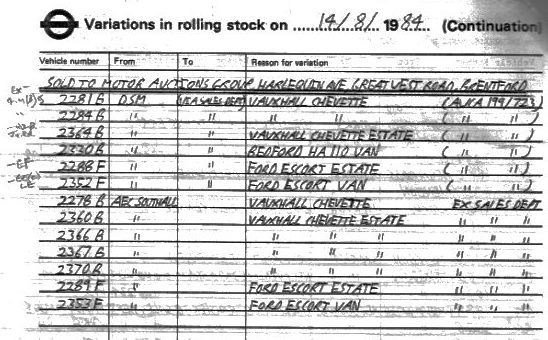 Variations in rolling stock on 14/8/1984 (Continuation)
Vehicle number From To Reason for variation
SOLD TO MOTOR AUCTIONS GROUP, HARLEQUIN AVE, GREAT WEST ROAD, BRENTFORD
2281 B DSM (VEA SALES DEPT) VAUXHALL CHEVETTE (AUCA 199/723)
2284 B " " " " ( " " )
2364 B " " VAUXHALL CHEVETTE ESTATE ( " " )
2330 B " " BEDFORD HA 110 VAN ( " " )
2288 F " " FORD ESCORT ESTATE ( " " )
2352 F " " FORD ESCORT VAN ( " " )
2278 B AEC SOUTHALL VAUXHALL CHEVETTE EX SALES DEPT
2360 B " VAUXHALL CHEVETTE ESTATE " " "
2366 B " " " " " " "
2367 B " " " " " " "
2370 B " " " " " " "
2289 F " FORD ESCORT ESTATE " " "
2353 F " FORD ESCORT VAN " " "